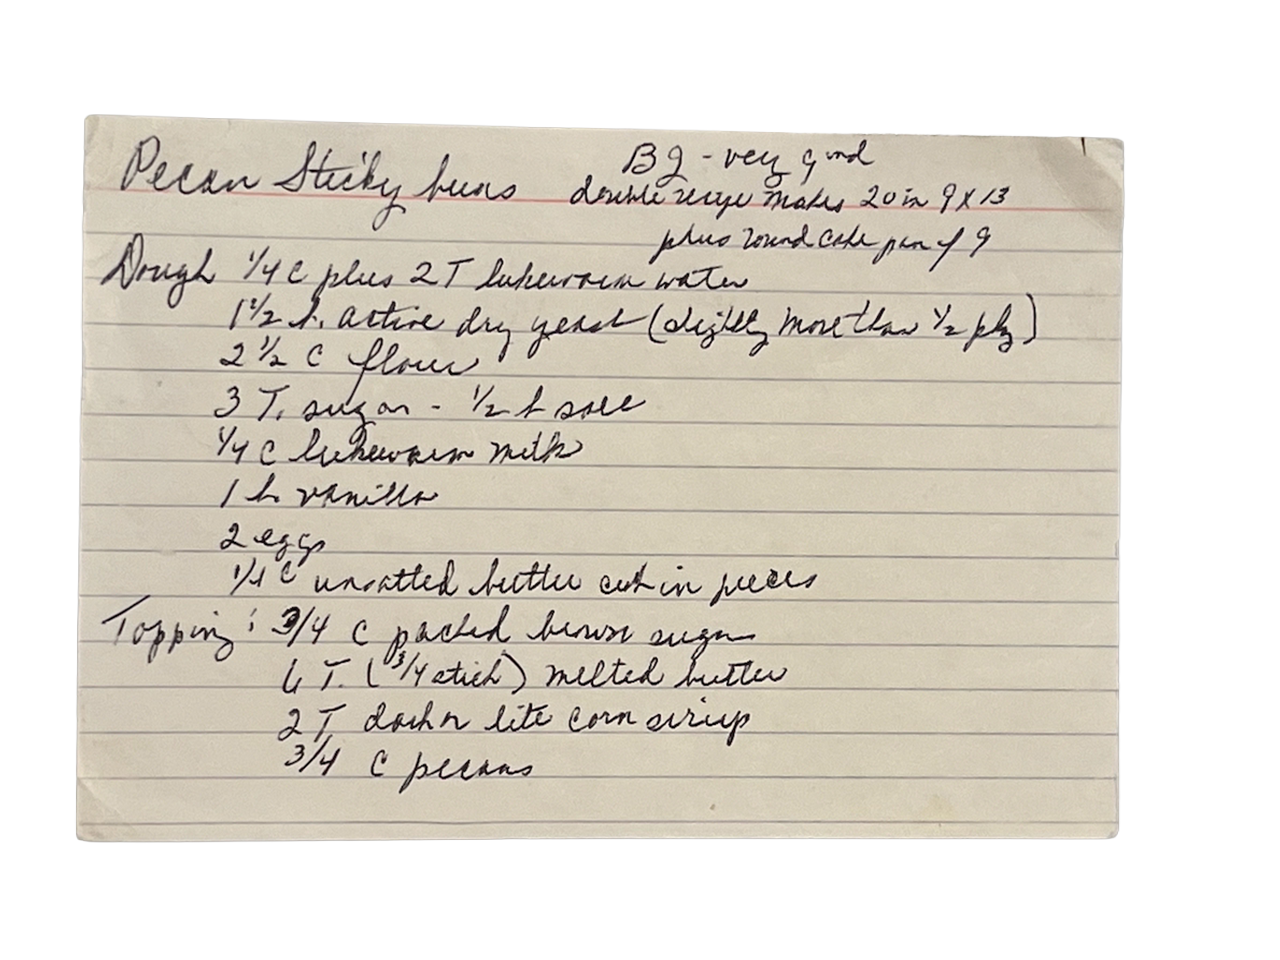 Pecan Sticky buns
BJ - very good
double recipe makes 20 in 9 x 13
plus round cake pan of 9
Dough 1/4 C plus 2 T lukewarm water
1 1/2 t. active dry yeast (slightly more than 1/2 pkg)
2 1/2 C flour
3 T. sugar - 1/2 t salt
1/4 C lukewarm milk
1 t. vanilla
2 eggs
1/4 C unsalted butter cut in pieces
Topping: 3/4 C packed brown sugar
6 T. (3/4 stick) melted butter
2 T. dark or lite corn sirup
3/4 C pecans